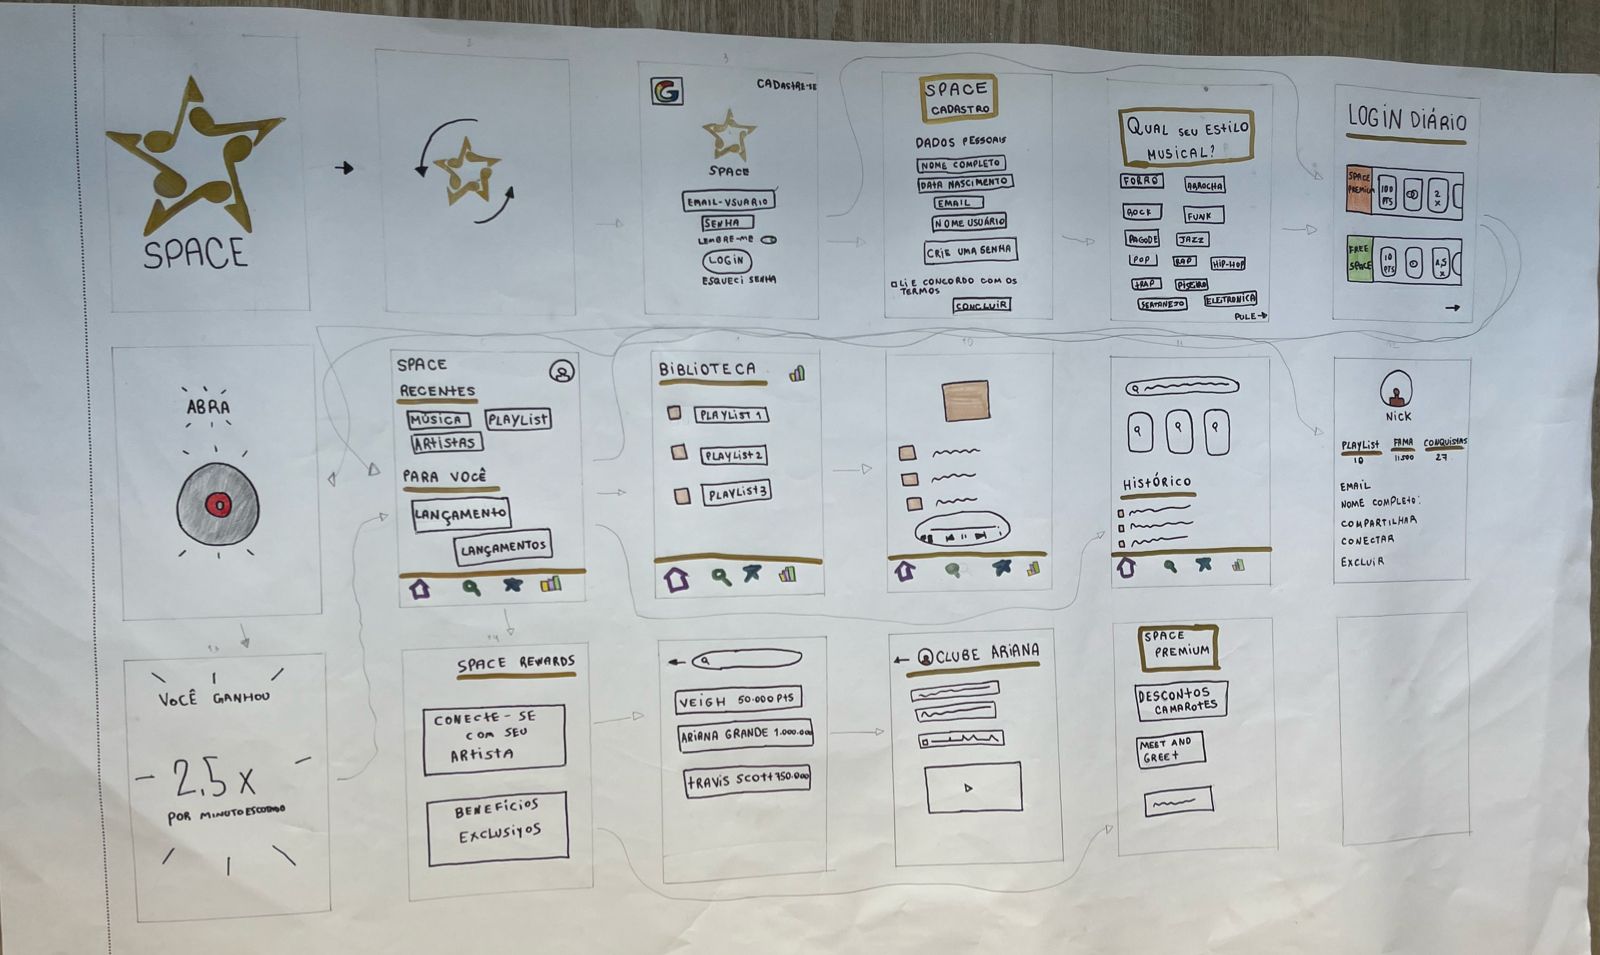 SPACE
2
3
CADASTRE-SE
SPACE
EMAIL-USUARIO
SENHA
LEMBRE-ME
LOGIN
ESQUECI SENHA
SPACE
CADASTRO
DADOS PESSOAIS
NOME COMPLETO
DATA NASCIMENTO
EMAIL
NOME USUÁRIO
CRIE UMA SENHA
LI E CONCORDO COM OS
TERMOS
CONCLUIR
QUAL SEU ESTILO
MUSICAL?
FORRÓ
ARROCHA
ROCK
FUNK
PAGODE
JAZZ
POP
RAP
HIP-HOP
TRAP
PISEIRO
SERTANEJO
ELETRONICA
PULE
LOGIN DIÁRIO
SPACE
PREMIUM
100
PTS
2
X
FREE
SPACE
10
PTS
1,5
X
ABRA
SPACE
RECENTES
MÚSICA
PLAYLIST
ARTISTAS
PARA VOCÊ
LANÇAMENTO
LANÇAMENTOS
BIBLIOTECA
PLAYLIST 1
PLAYLIST 2
PLAYLIST 3
10
11
HISTÓRICO
12
NICK
PLAYLIST FAMA CONQUISTAS
10 11500 27
EMAIL
NOME COMPLETO:
COMPARTILHAR
CONECTAR
EXCLUIR
13
VOCÊ GANHOU
2,5 x
POR MINUTO ESCUTADO
14
SPACE REWARDS
CONECTE-SE
COM SEU
ARTISTA
BENEFÍCIOS
EXCLUSIVOS
VEIGH 50.000 PTS
ARIANA GRANDE 1.000.000
TRAVIS SCOTT 750.000
CLUBE ARIANA
SPACE
PREMIUM
DESCONTOS
CAMAROTES
MEET AND
GREET